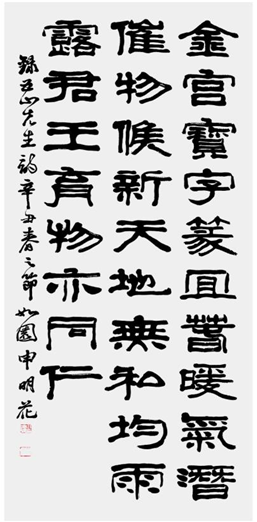 金宮寶字篆宜春暖氣潛
催物候新天地無私均雨
露君王育物亦同仁
先生 辛丑春之節 如園申明花